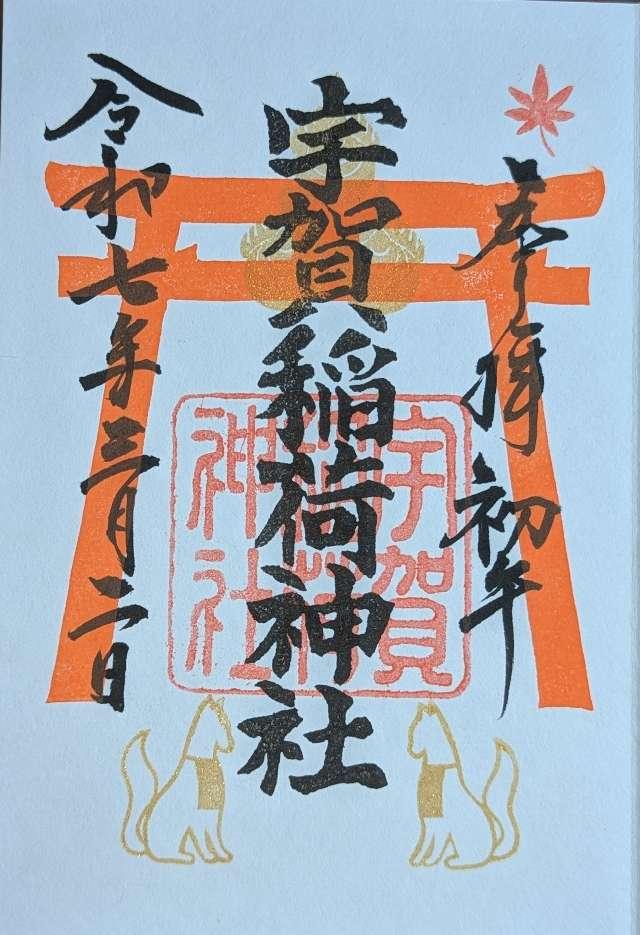 奉拝 初午
宇賀稲荷神社
令和七年三月二日
宇賀
稲荷
神社